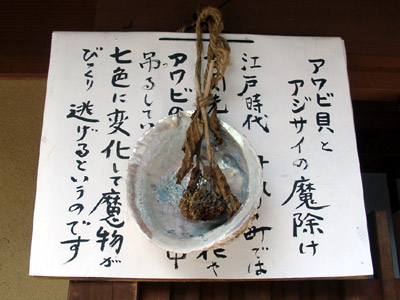 アワビ貝と
アジサイの魔除け
江戸時代
町では
花や
吊るしてい
アワビの
中
七色に変化して魔物が
びっくり逃げるというのです